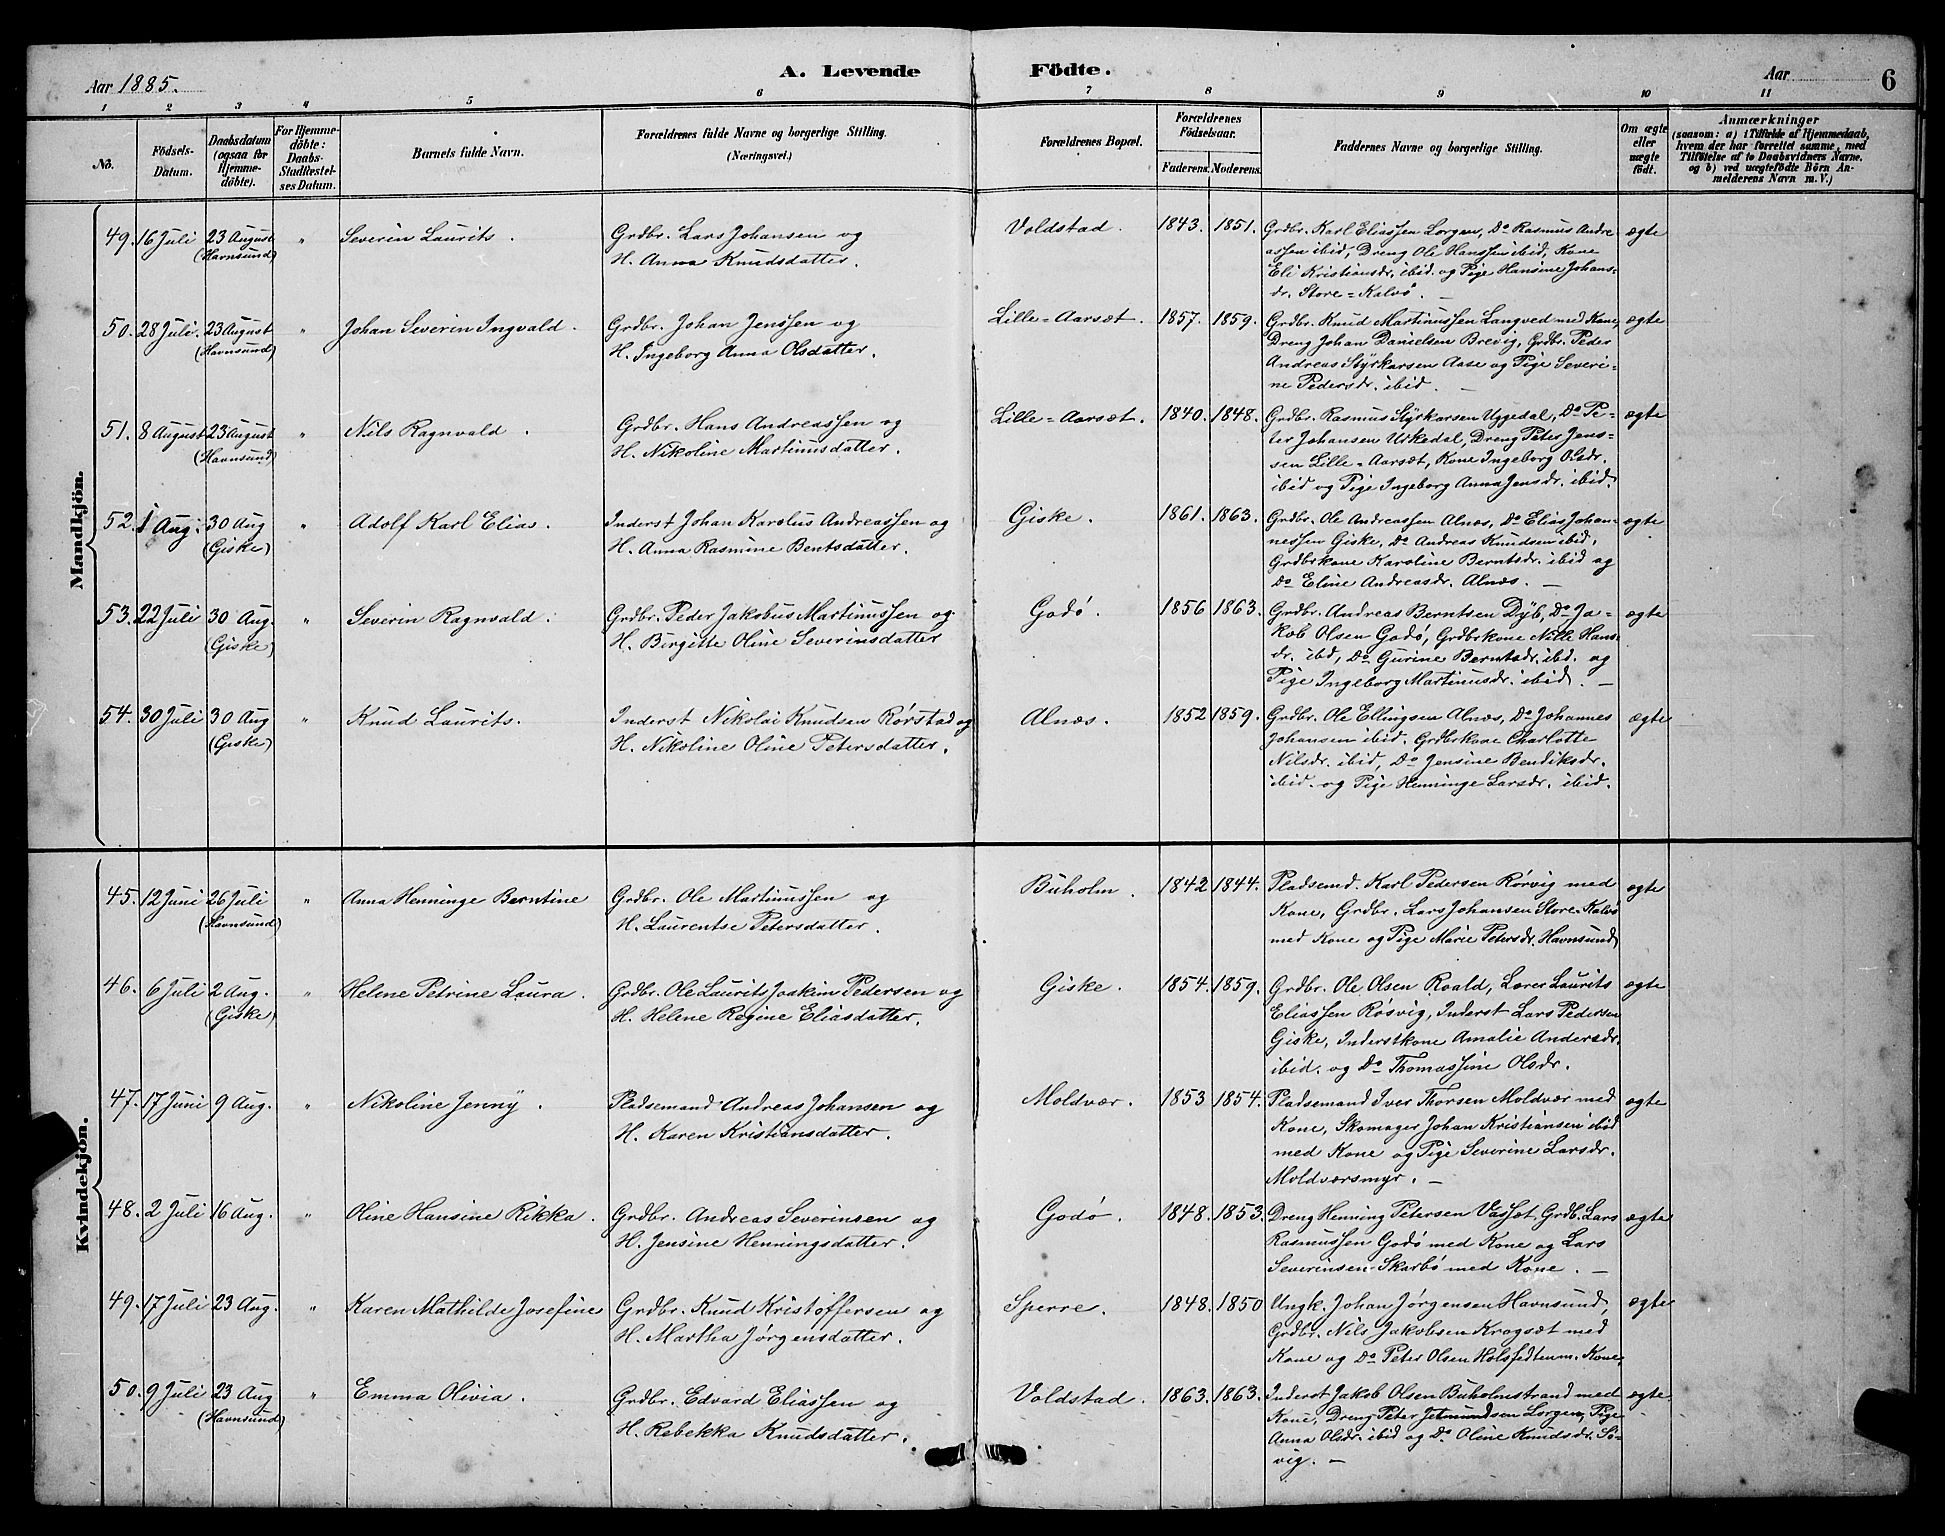 Aar 1885. A. Levende Födte. Aar 6
1 2 3 4 5 6 7 8 9 10 11
No. Födsels-Datum. Daabsdatum (ogsaa for Hjemme-döbte). For Hjemme-döbte: Daabs-Stadfæstel-ses Datum. Barnets fulde Navn. Forældrenes fulde Navne og borgerlige Stilling. (Næringsvei.) Forældrenes Bopæl. Forældrenes Födselsaar. Faderens. Moderens. Faddernes Navne og borgerlige Stilling. Om ægte eller uægte födt. Anmærkninger (saasom: a) i Tilfælde af Hjemmedaab, hvem der har forrettet samme, med Tilföielse af to Daabsvidners Navne, og b) ved uægtefödte Börn An-melderens Navn m. V.)
Mandkjön.
49. 16 Juli 23 August " Severin Laurits. Grdbr. Lars Johansen og Voldstad. 1843. 1851. Grdbr. Karl Eliassen Lorgen, Do Rasmus Andre ægte
(Havnsund) H. Anna Knudsdatter. assen ibid, Dreng Ole Hanssen ibid, Kone
Eli Kristiansdr. ibid. og Pige Hansine Johans-
dr. Store=Kalvø. —
50. 28 Juli. 23 August " Johan Severin Ingvald. Grdbr. Johan Jenssen og Lille=Aarsæt. 1857. 1859. Grdbr. Knud Martinussen Langved med Kone, ægte
(Havnsund) H. Ingeborg Anna Olsdatter. Dreng Johan Danielsen Brevig, Grdbr. Peder
Andreas Styrkarsen Aase og Pige Severi=
ne Pedersdr. ibid. —
51. 8 August 23 August " Nils Ragnvald. Grdbr. Hans Andreassen og Lille=Aarsæt. 1840. 1848. Grdbr. Rasmus Styrkarsen Uggedal, Do Pe= ægte
(Havnsund) H. Nikoline Martinusdatter. ter Johansen Urkedal, Dreng Peter Jens=
sen Lille=Aarsæt, Kone Ingeborg Olsdr.
ibid og Pige Ingeborg Anna Jensdr. ibid.
52. 1 Aug. 30 Aug " Adolf Karl Elias. Inderst Johan Karolus Andreassen og Giske. 1861. 1863. Grdbr. Ole Andreassen Alnæs, Do Elias Johan= ægte
(Giske) H. Anna Rasmine Bentsdatter. nessen Giske, Do Andreas Knudsen ibid,
Grdbrkone Karoline Berntsdr. ibid og
Do Eline Andreasdr. Alnæs. —
53. 22 Juli 30 Aug. " Severin Ragnvald. Grdbr. Peder Jakobus Martinussen og Godø. 1856 1863. Grdbr. Andreas Berntsen Dyb, Do Ja= ægte
(Giske) H. Birgitte Oline Severinsdatter kob Olsen Godø, Grdbrkone Nille Hans=
dr. ibid, Do Gurine Berntsdr. ibd. og
Pige Ingeborg Martinusdr. ibid. —
54. 30 Juli 30 Aug " Knud Laurits. Inderst Nikolai Knudsen Rørstad og Alnæs. 1852 1859. Grdbr. Ole Ellingsen Alnæs, Do Johannes ægte
(Giske) H. Nikoline Oline Petersdatter. Johansen ibid. Grdbrkone Charlotte
Nilsdr. ibid, Do Jensine Bendiksdr.
ibid. og Pige Henninge Larsdr. ibid.
Kvindekjön.
45. 12 Juni 26 Juli " Anna Henninge Berntine Grdbr. Ole Martinussen og Buholm. 1842 1844. Pladsemd. Karl Pedersen Rørvig med ægte
(Havnsund) H. Laurentse Petersdatter. Kone, Grdbr. Lars Johansen Store-Kalvø
med Kone og Pige Marie Petersdr. Havnsund
46. 6 Juli 2 Aug. " Helene Petrine Laura. Grdbr. Ole Laurits Joakim Pedersen og Giske. 1854. 1859. Grdbr. Ole Olsen Roald, Lærer Laurits ægte
(Giske) H. Helene Regine Eliasdatter. Eliassen Røsvig, Inderst Lars Pedersen
Giske, Inderstkone Amalie Andersdr.
ibid. og Do Thomassine Olsdr.
47. 17 Juni 9 Aug. " Nikoline Jenny. Pladsemand Andreas Johansen og Moldvær. 1853 1854. Pladsemand Iver Thorsen Moldvær med ægte
H. Karen Kristiansdatter. Kone, Skomager Johan Kristiansen ibid
med Kone og Pige Severine Larsdr.
Moldværsmyr. —
48. 2 Juli 16 Aug. " Oline Hansine Rikka. Grdbr. Andreas Severinsen og Godø. 1848. 1853. Dreng Henning Petersen Vassæt, Grdb. Lars ægte
H. Jensine Henningsdatter. Rasmussen Godø med Kone og Lars
Severinsen Skarbø med Kone. —
49. 17 Juli 23 Aug. " Karen Mathilde Josefine Grdbr. Knud Kristoffersen og Sperre. 1848. 1850 Ungk. Johan Jørgensen Havnsund, ægte
H. Martha Jørgensdatter. Grdbr. Nils Jakobsen Krogsæt med
Kone og Do Peter Olsen m. Kone,
50. 9 Juli 23 Aug " Emma Olivia. Grdbr. Edvard Eliassen og Voldstad. 1863. 1863. Inderst Jakob Olsen Buholmstrand med ægte
(Havnsund) H. Rebekka Knudsdatter. Kone, Dreng Peter Jetmundsen Lorgen, Pige
Anna Olsdr. ibid og Do Oline Knudsdr. Sö-
vig. —